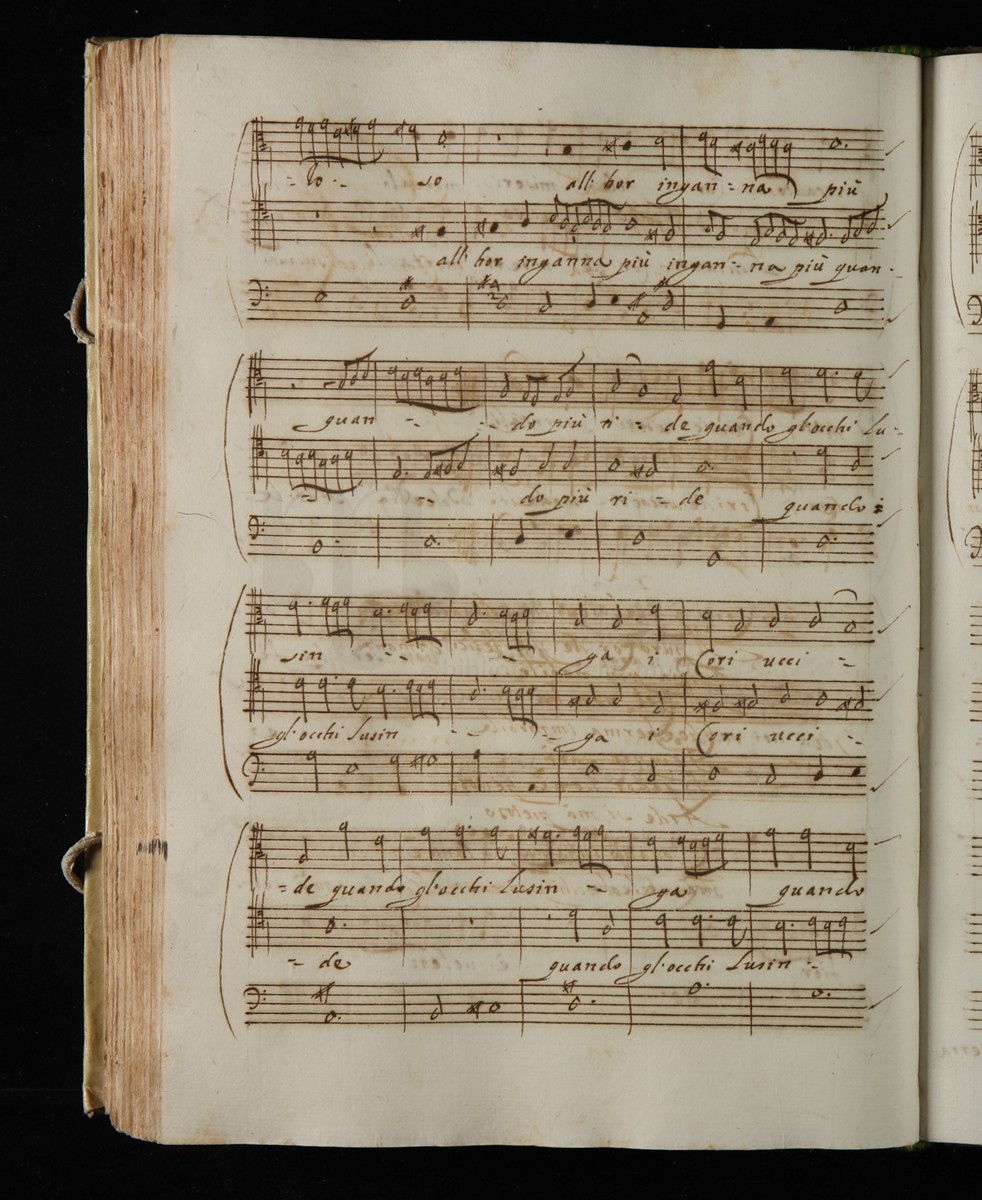 = lo - so all' hor ingan = na più
all' hor inganna più ingan - na più quan -
quan - - do più ri = de quando gl'occhi lu -
= - do più ri = de quando
sin - - ga i Cori ucci =
gl'occhi lusin - - ga i Cori ucci -
= de quando gl'occhi lusin - ga quando
= de quando gl'occhi lusin =